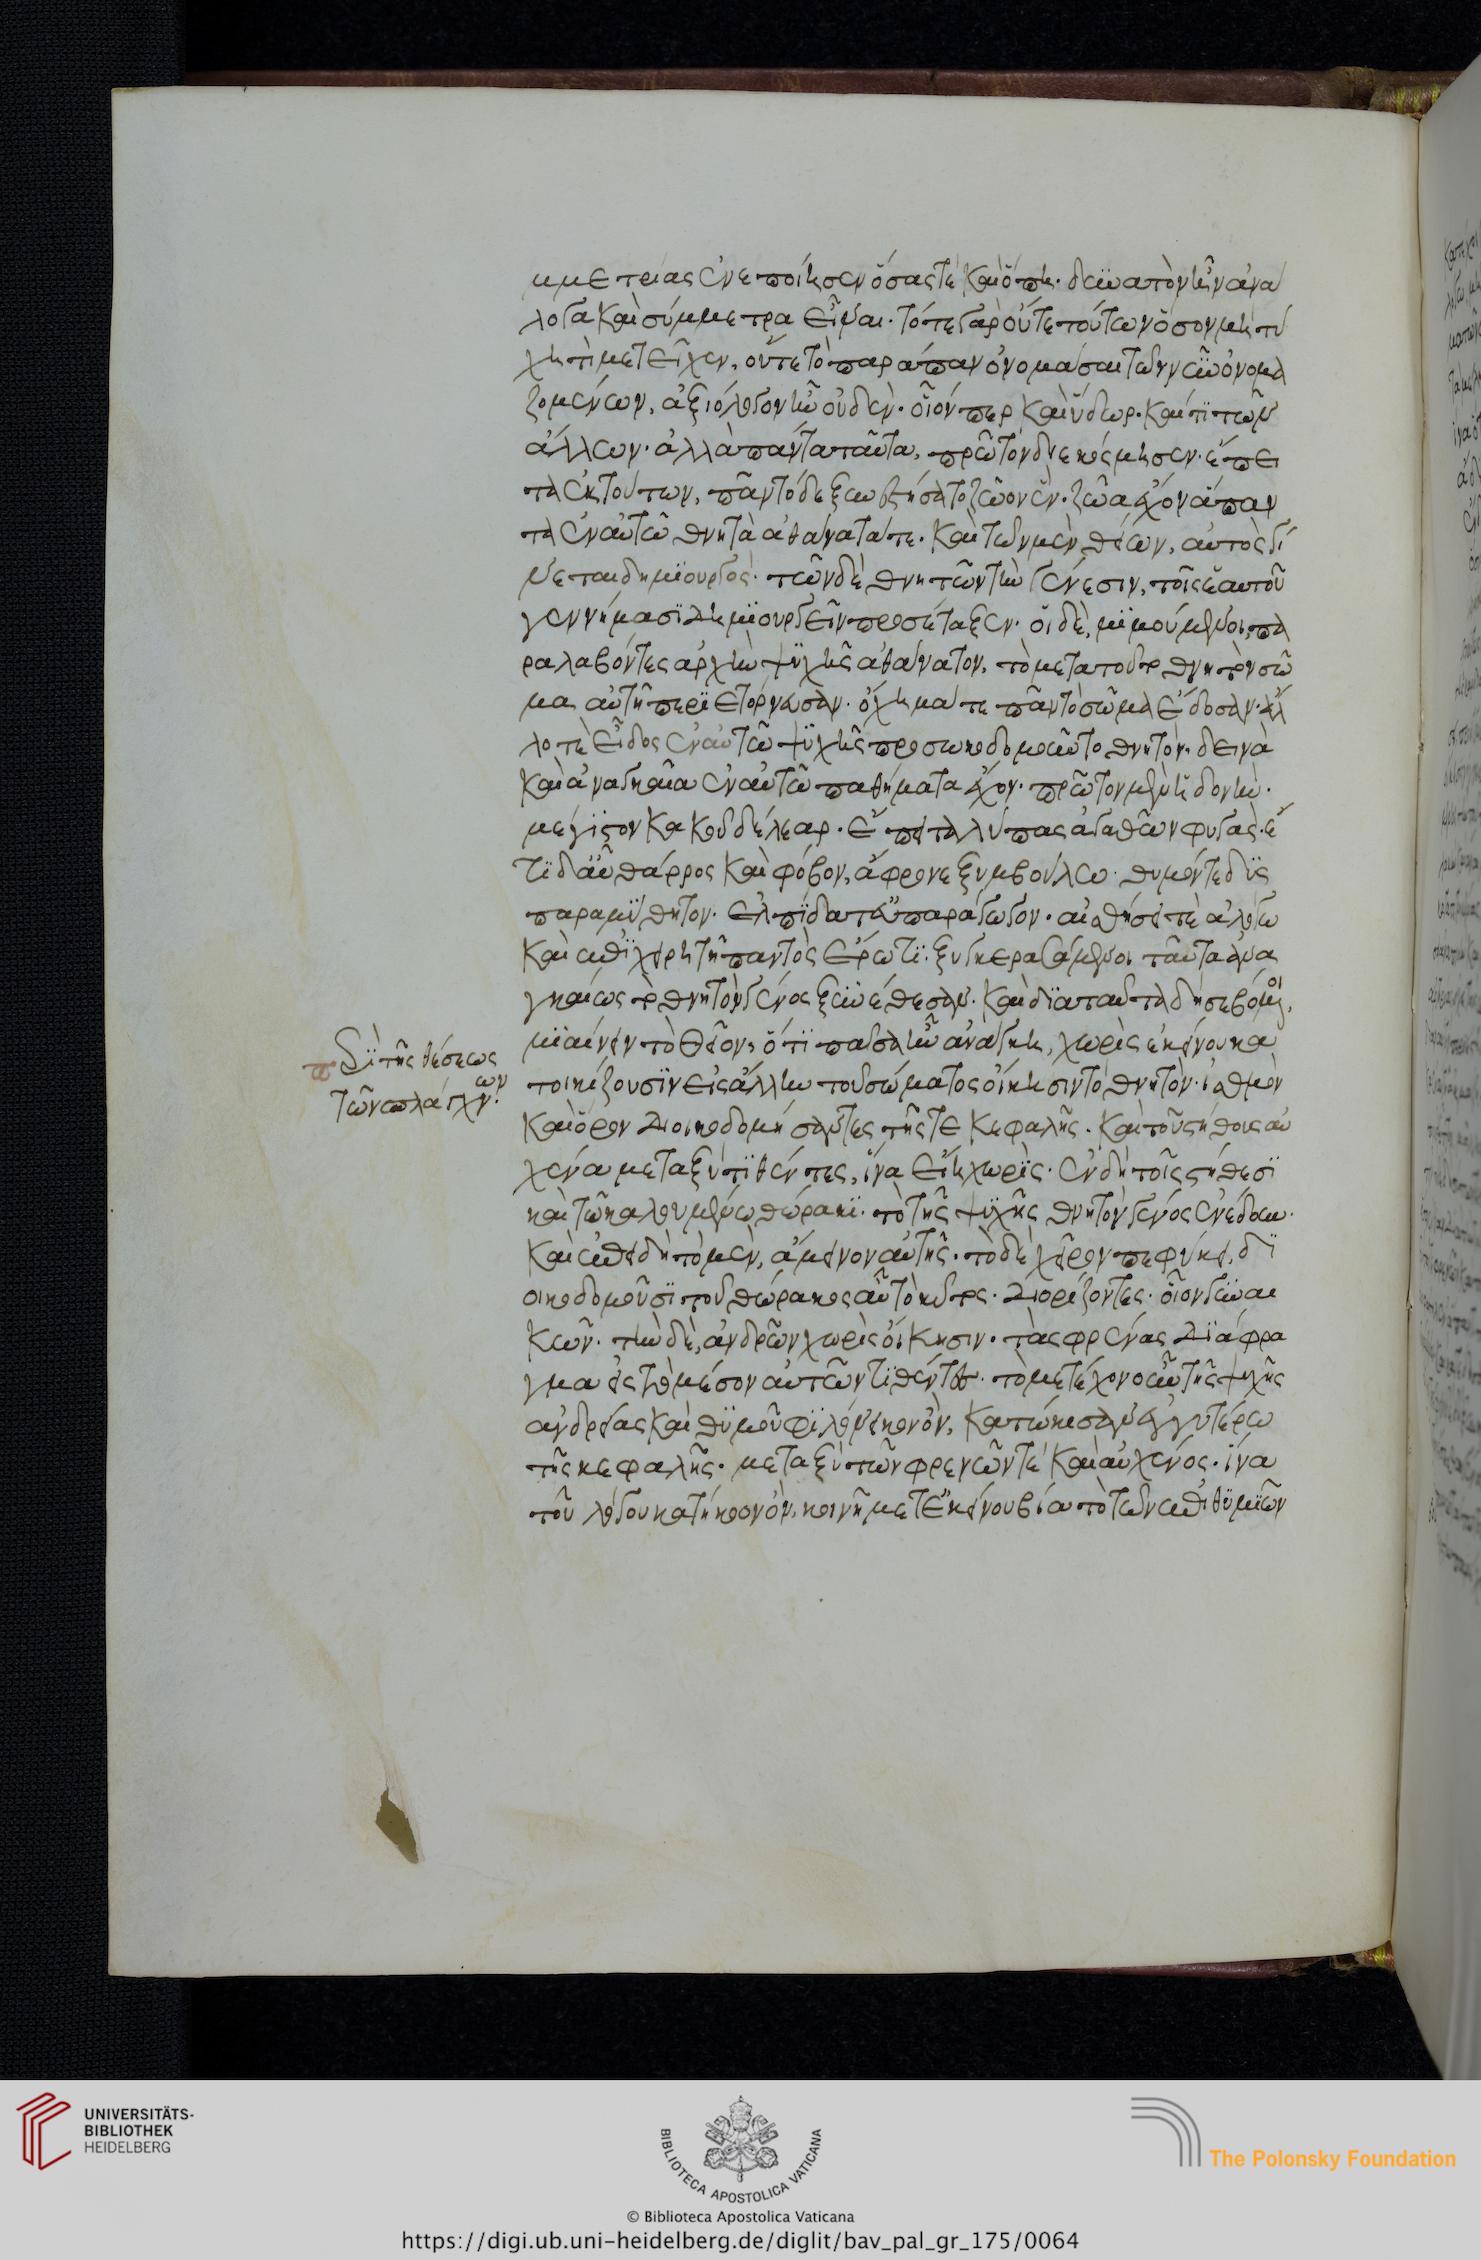 μμετρίας ἐνεποίησεν ὅσας τὲ καὶ ὅπη· δυνατὸν ἦν ἀνά
λογα καὶ σύμμετρα εἶναι· τότε γὰρ οὔτε τούτων ὅσον μὴ τύ
χῃ τὶ μετεῖχεν, οὔτε τὸ παράπαν ὀνομάσαι τῶν νῦν ὀνομα
ζομένων, ἀξιόλογον ἦν οὐδέν· οἷόν περ καὶ ὕδωρ· καί τι τῶν
ἄλλων· ἀλλὰ πάντα ταῦτα, πρῶτον διεκόσμησεν· ἔπει
τα ἐκ τούτων, πᾶν τόδε ξυνεστήσατο ζῶον ἕν· ζῶα ἔχον ἅπαν
τα ἐν αὑτῶ θνητὰ ἀθάνατά τε· καὶ τῶν μὲν θείων, αὐτὸς γί
νεται δημιουργός· τῶν δὲ θνητῶν τὴν γένεσιν, τοῖς ἑαυτοῦ
γεννήμασι δημιουργεῖν προσέταξεν· οἱ δὲ, μιμούμενοι, πα
ραλαβόντες ἀρχὴν ψυχῆς ἀθάνατον, τὸ μετὰ τοῦτο θνητὸν σῶ
μα αὐτῆ περιετόρνευσαν· ὄχημά τε πᾶν τὸ σῶμα ἔδοσαν· ἄλ
λο τὲ εἶδος ἐν αὐτῶ ψυχῆς προσωκοδομοῦν τὸ θνητόν· δεινὰ
καὶ ἀναγκαῖα ἐν αὑτῶ παθήματα ἔχον· πρῶτον μὲν ἡδονὴν·
μέγιστον κακοῦ δέλεαρ· ἔπειτα λύπας ἀγαθῶν φυγὰς· ἔ
τι δ' αὖ θάρρος καὶ φόβον, ἄφρονε ξυμβούλω· θυμόν τε δυς
παραμύθητον· ἐλπίδα τ' εὐπαράγωγον· αἰσθήσει τὲ ἀλόγω
καὶ ἐπιχειρητῆ παντὸς ἔρωτι· ξυγκερασάμενοι ταῦτα ἀνα
γκαίως τὸ θνητὸν γένος ξυνέθεσαν· καὶ διὰ ταῦτα δὴ σεβόμενοι
μιαίνειν τὸ θεῖον, ὅτι πᾶσα ἦν ἀνάγκη, χωρὶς ἐκείνου κα
τοικίζουσιν εἰς ἄλλην τοῦ σώματος οἴκησιν τὸ θνητόν· ἰσθμὸν
καὶ ὅρον διοικοδομήσαντες τῆς τε κεφαλῆς· καὶ τοῦ στήθους αὐ
χένα μεταξὺ τιθέντες, ἵνα εἴη χωρίς· ἐν δὴ τοῖς στήθεσι
καὶ τῶ καλουμένω θώρακι· τὸ τῆς ψυχῆς θνητὸν γένος ἐνέδουν·
καὶ ἐπειδὴ τὸ μὲν, ἄμεινον αὐτῆς· τὸ δὲ χεῖρον πέφυκε, δι
οικοδομοῦσι τοῦ θώρακος αὖ τὸ κύτος· διορίζοντες· οἷον γυναι
κῶν· τὴν δὲ, ἀνδρῶν χωρὶς οἴκησιν· τὰς φρένας διάφρα
γμα εἰς τὸ μέσον αὐτῶν τιθέντες· τὸ μετέχον οὖν τῆς ψυχῆς
ἀνδρείας καὶ θυμοῦ φιλόνεικον ὂν, κατώκισαν ἐγγυτέρω
τῆς κεφαλῆς· μεταξὺ τῶν φρενῶν τὲ καὶ αὐχένος· ἵνα
τοῦ λόγου κατήκοον ὂν, κοινῆ μετ' ἐκείνου βία τὸ τῶν ἐπιθυμιῶν
περὶ τῆς θέσεως
τῶν σπλάγχνων·
UNIVERSITÄTS-
BIBLIOTHEK
HEIDELBERG
BIBLIOTECA APOSTOLICA VATICANA
The Polonsky Foundation
© Biblioteca Apostolica Vaticana
https://digi.ub.uni-heidelberg.de/diglit/bav_pal_gr_175/0064